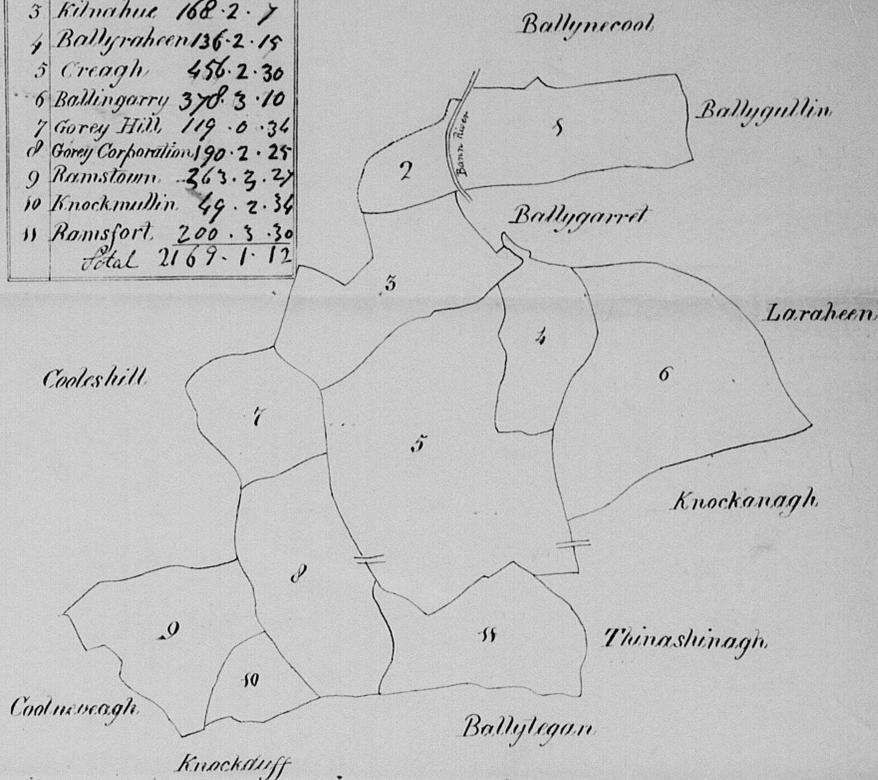 3 Kilnahue 168 . 2 . 7
4 Ballyraheen 136 . 2 . 15
5 Creagh 456 . 2 . 30
6 Ballingarry 378 . 3 . 10
7 Gorey Hill 119 . 0 . 34
8 Gorey Corporation 190 . 2 . 25
9 Ramstown 263 . 3 . 27
10 Knockmullin 49 . 2 . 34
11 Ramsfort 200 . 3 . 30
Total 2169 . 1 . 12
Ballynecool
Ballygullin
1
Bann River
2
Ballygarret
3
Laraheen
4
Cooleshill
6
7
5
Knockanagh
8
9
11
Thinashinagh
10
Coolneveagh
Ballytegan
Knockduff